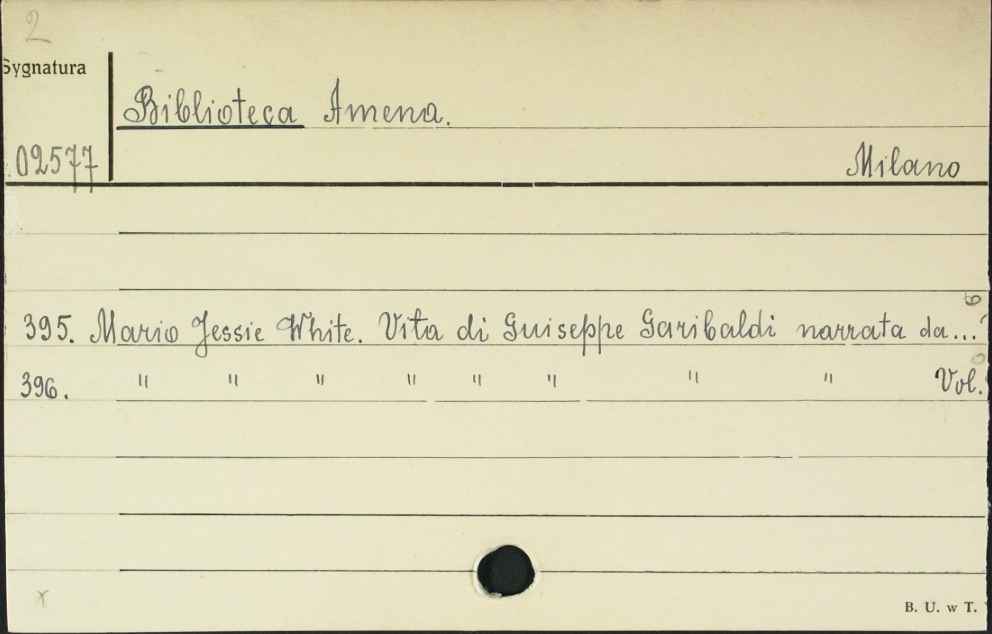 2
Sygnatura
Biblioteca Amena.
02577
Milano
395. Mario Jessie White. Vita di Guiseppe Garibaldi narrata da...
396. " " " " " " " " Vol.
B. U. w T.